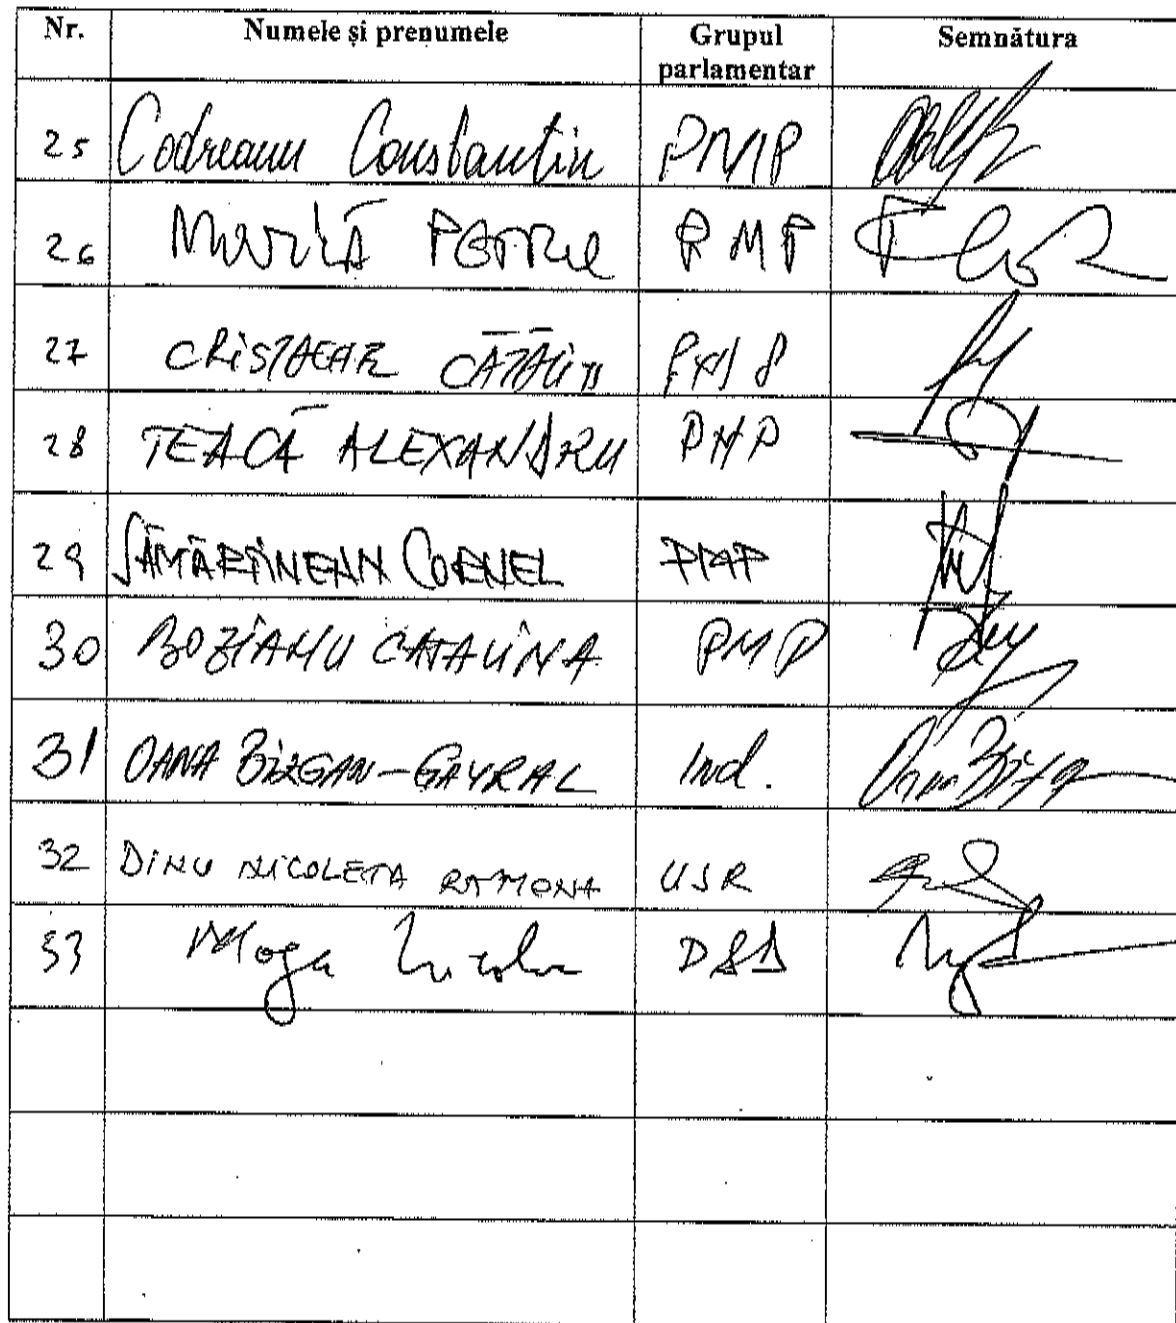 Nr. Numele și prenumele Grupul parlamentar Semnătura
25 Codreanu Constantin PMP
26 Movilă PETRU PMP
27 CRISTACHE CĂTĂLIN PMP
28 TEACĂ ALEXANDRU PMP
29 SĂMĂRTINEAN CORNEL PMP
30 BOZIANU CATALINA PMP
31 OANA BIZGAN-GAYRAL Ind.
32 DINU NICOLETA RAMONA USR
33 Moga Nicolae PSD